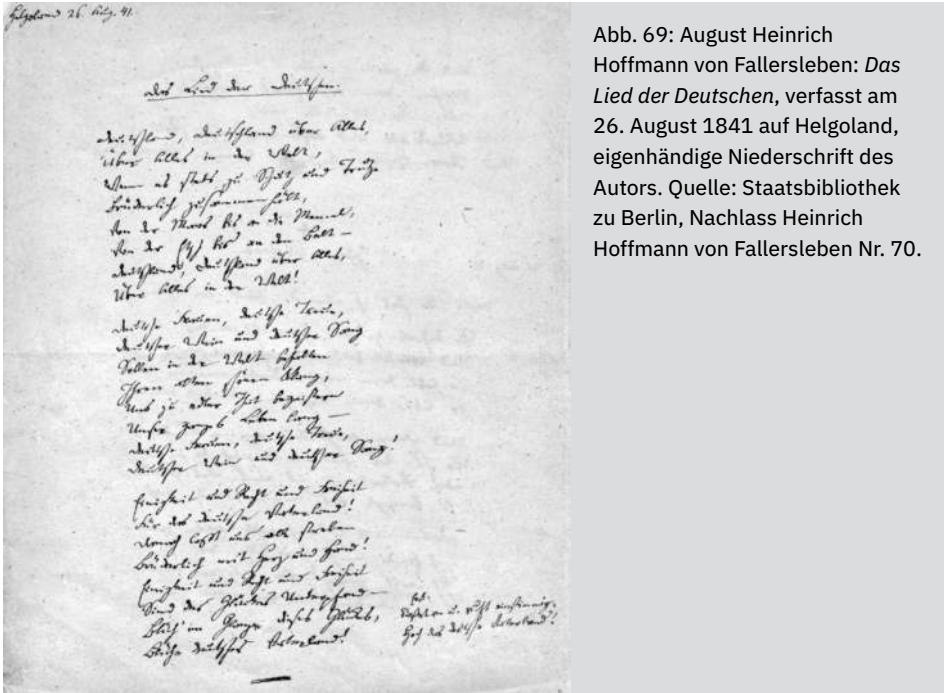 Helgoland 26. Aug. 41.
Das Lied der Deutschen.
Deutschland, Deutschland über Alles,
Über Alles in der Welt,
Wenn es stets zu Schutz und Trutze
Brüderlich zusammenhält,
Von der Maas bis an die Memel,
Von der Etsch bis an den Belt –
Deutschland, Deutschland über Alles,
Über Alles in der Welt!
Deutsche Frauen, deutsche Treue,
Deutscher Wein und deutscher Sang
Sollen in der Welt behalten
Ihren alten schönen Klang,
Uns zu edler That begeistern
Unser ganzes Leben lang –
Deutsche Frauen, deutsche Treue,
Deutscher Wein und deutscher Sang!
Einigkeit und Recht und Freiheit
Für das deutsche Vaterland!
Danach lasst uns alle streben
Brüderlich mit Herz und Hand!
Einigkeit und Recht und Freiheit
Sind des Glückes Unterpfand –
Blüh' im Glanze dieses Glückes,
Blühe deutsches Vaterland!
Stoßet an u. ruft einstimmig:
Hoch das deutsche Vaterland!
Abb. 69: August Heinrich
Hoffmann von Fallersleben: Das
Lied der Deutschen, verfasst am
26. August 1841 auf Helgoland,
eigenhändige Niederschrift des
Autors. Quelle: Staatsbibliothek
zu Berlin, Nachlass Heinrich
Hoffmann von Fallersleben Nr. 70.